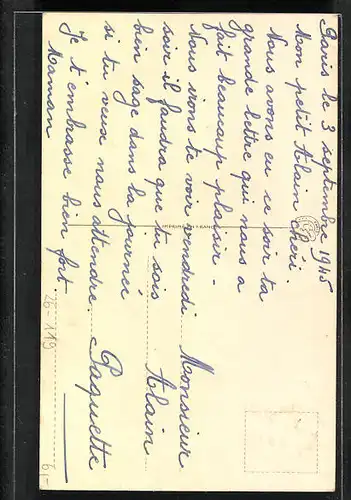 Paris le 3 septembre 1945
Mon petit Alain Chéri.
Nous avons eu ce soir ta
grande lettre qui nous a
fait beaucoup plaisir -
Nous irons te voir vendredi
soir il faudra que tu sois
bien sage dans la journée
si tu veux nous attendre.
Je t'embrasse bien fort.
Maman
Monsieur
Alain
Paquette
26-119
6,-